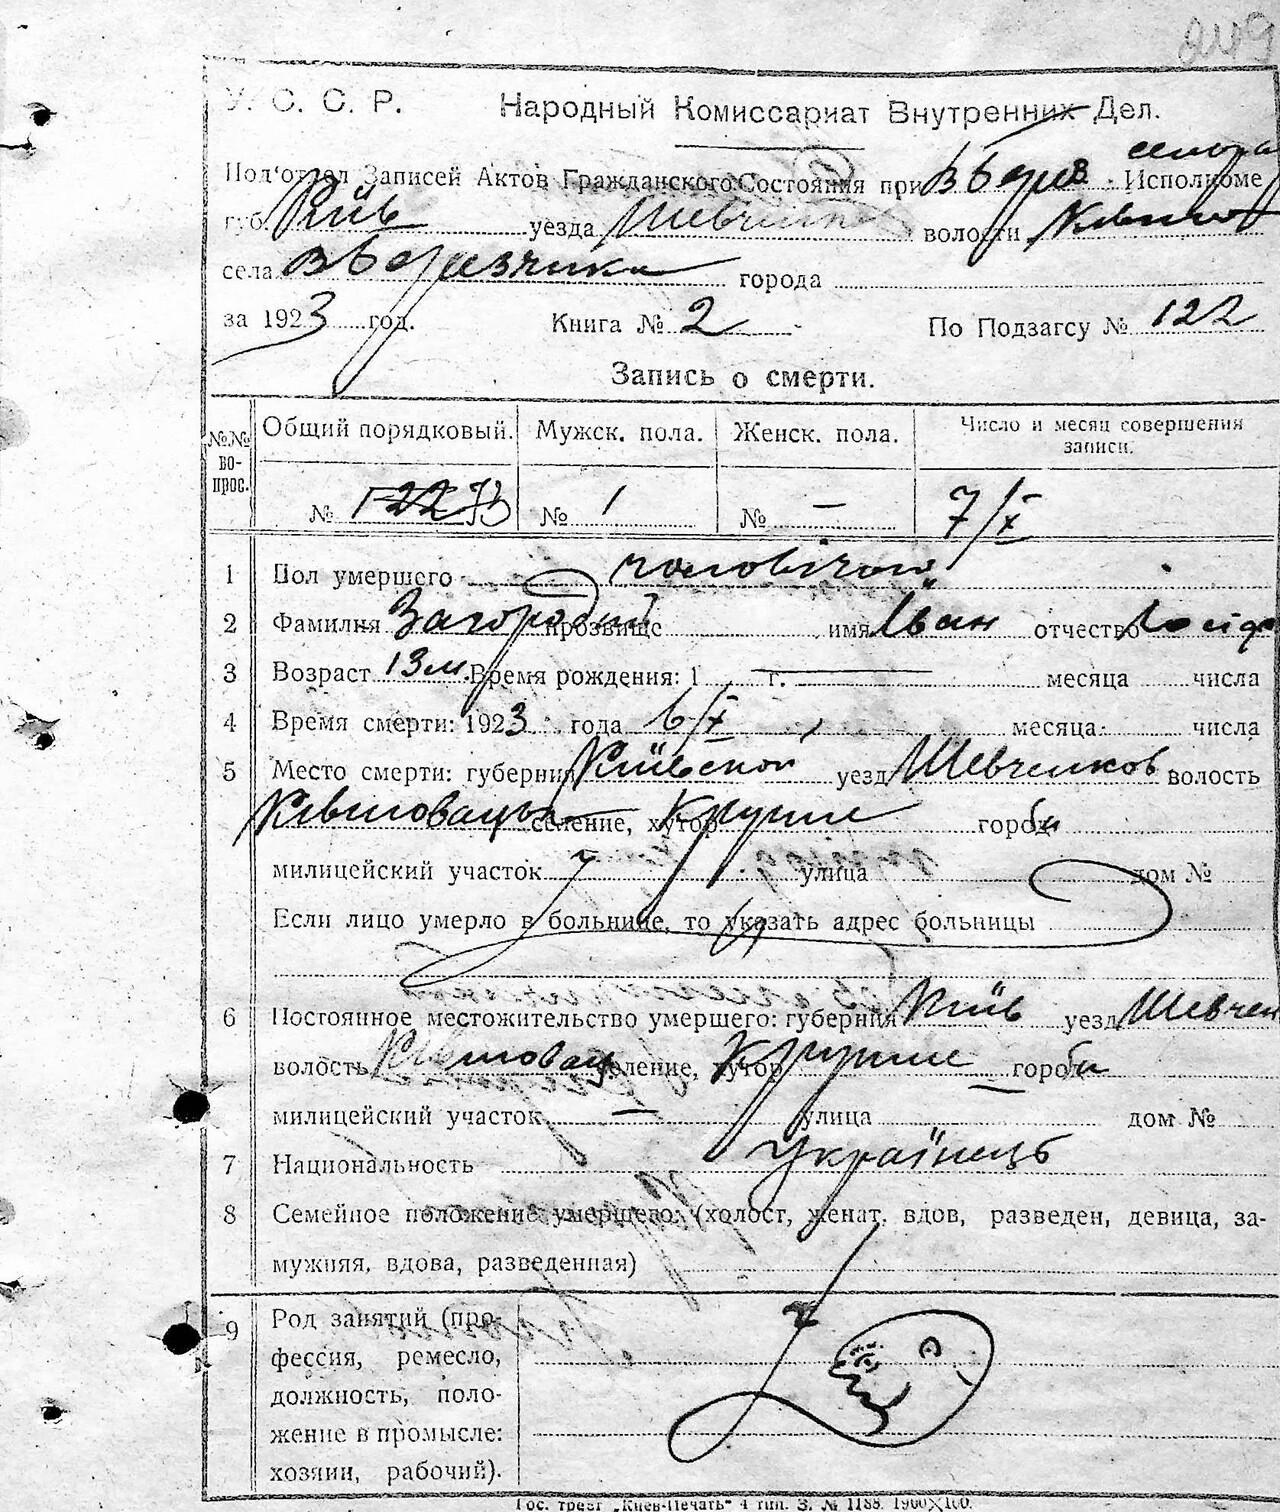 249
У. С. С. Р. Народный Комиссариат Внутренних Дел.
Под'отдел Записей Актов Гражданского Состояния при Исполкоме
губ. Київ уезда Шевченк волости
села города
за 1923 год. Книга № 2 По Подзагсу № 122
Запись о смерти.
№№ во- прос. Общий порядковый. Мужск. пола. Женск. пола. Число и месяц совершения записи.
№ 122 № 1 № — 7/X
1 Пол умершего чоловічой
2 Фамилия Загородній прозвище имя Іван отчество
3 Возраст 13 м. Время рождения: 1 г. месяца числа
4 Время смерти: 1923 года 6/X месяца числа
5 Место смерти: губерния Київской уезд Шевченков волость
селение, хутор города
милицейский участок улица дом №
Если лицо умерло в больнице, то указать адрес больницы
6 Постоянное местожительство умершего: губерния Київ уезд Шевчен
волость селение, хутор города
милицейский участок — улица дом №
7 Национальность Українець
8 Семейное положение умершего: (холост, женат, вдов, разведен, девица, за-
мужняя, вдова, разведенная)
9 Род занятий (про-
фессия, ремесло,
должность, поло-
жение в промысле:
хозяин, рабочий).
Гос. трест „Киев-Печать“ 4 тип. З. № 1188. 1900×100.